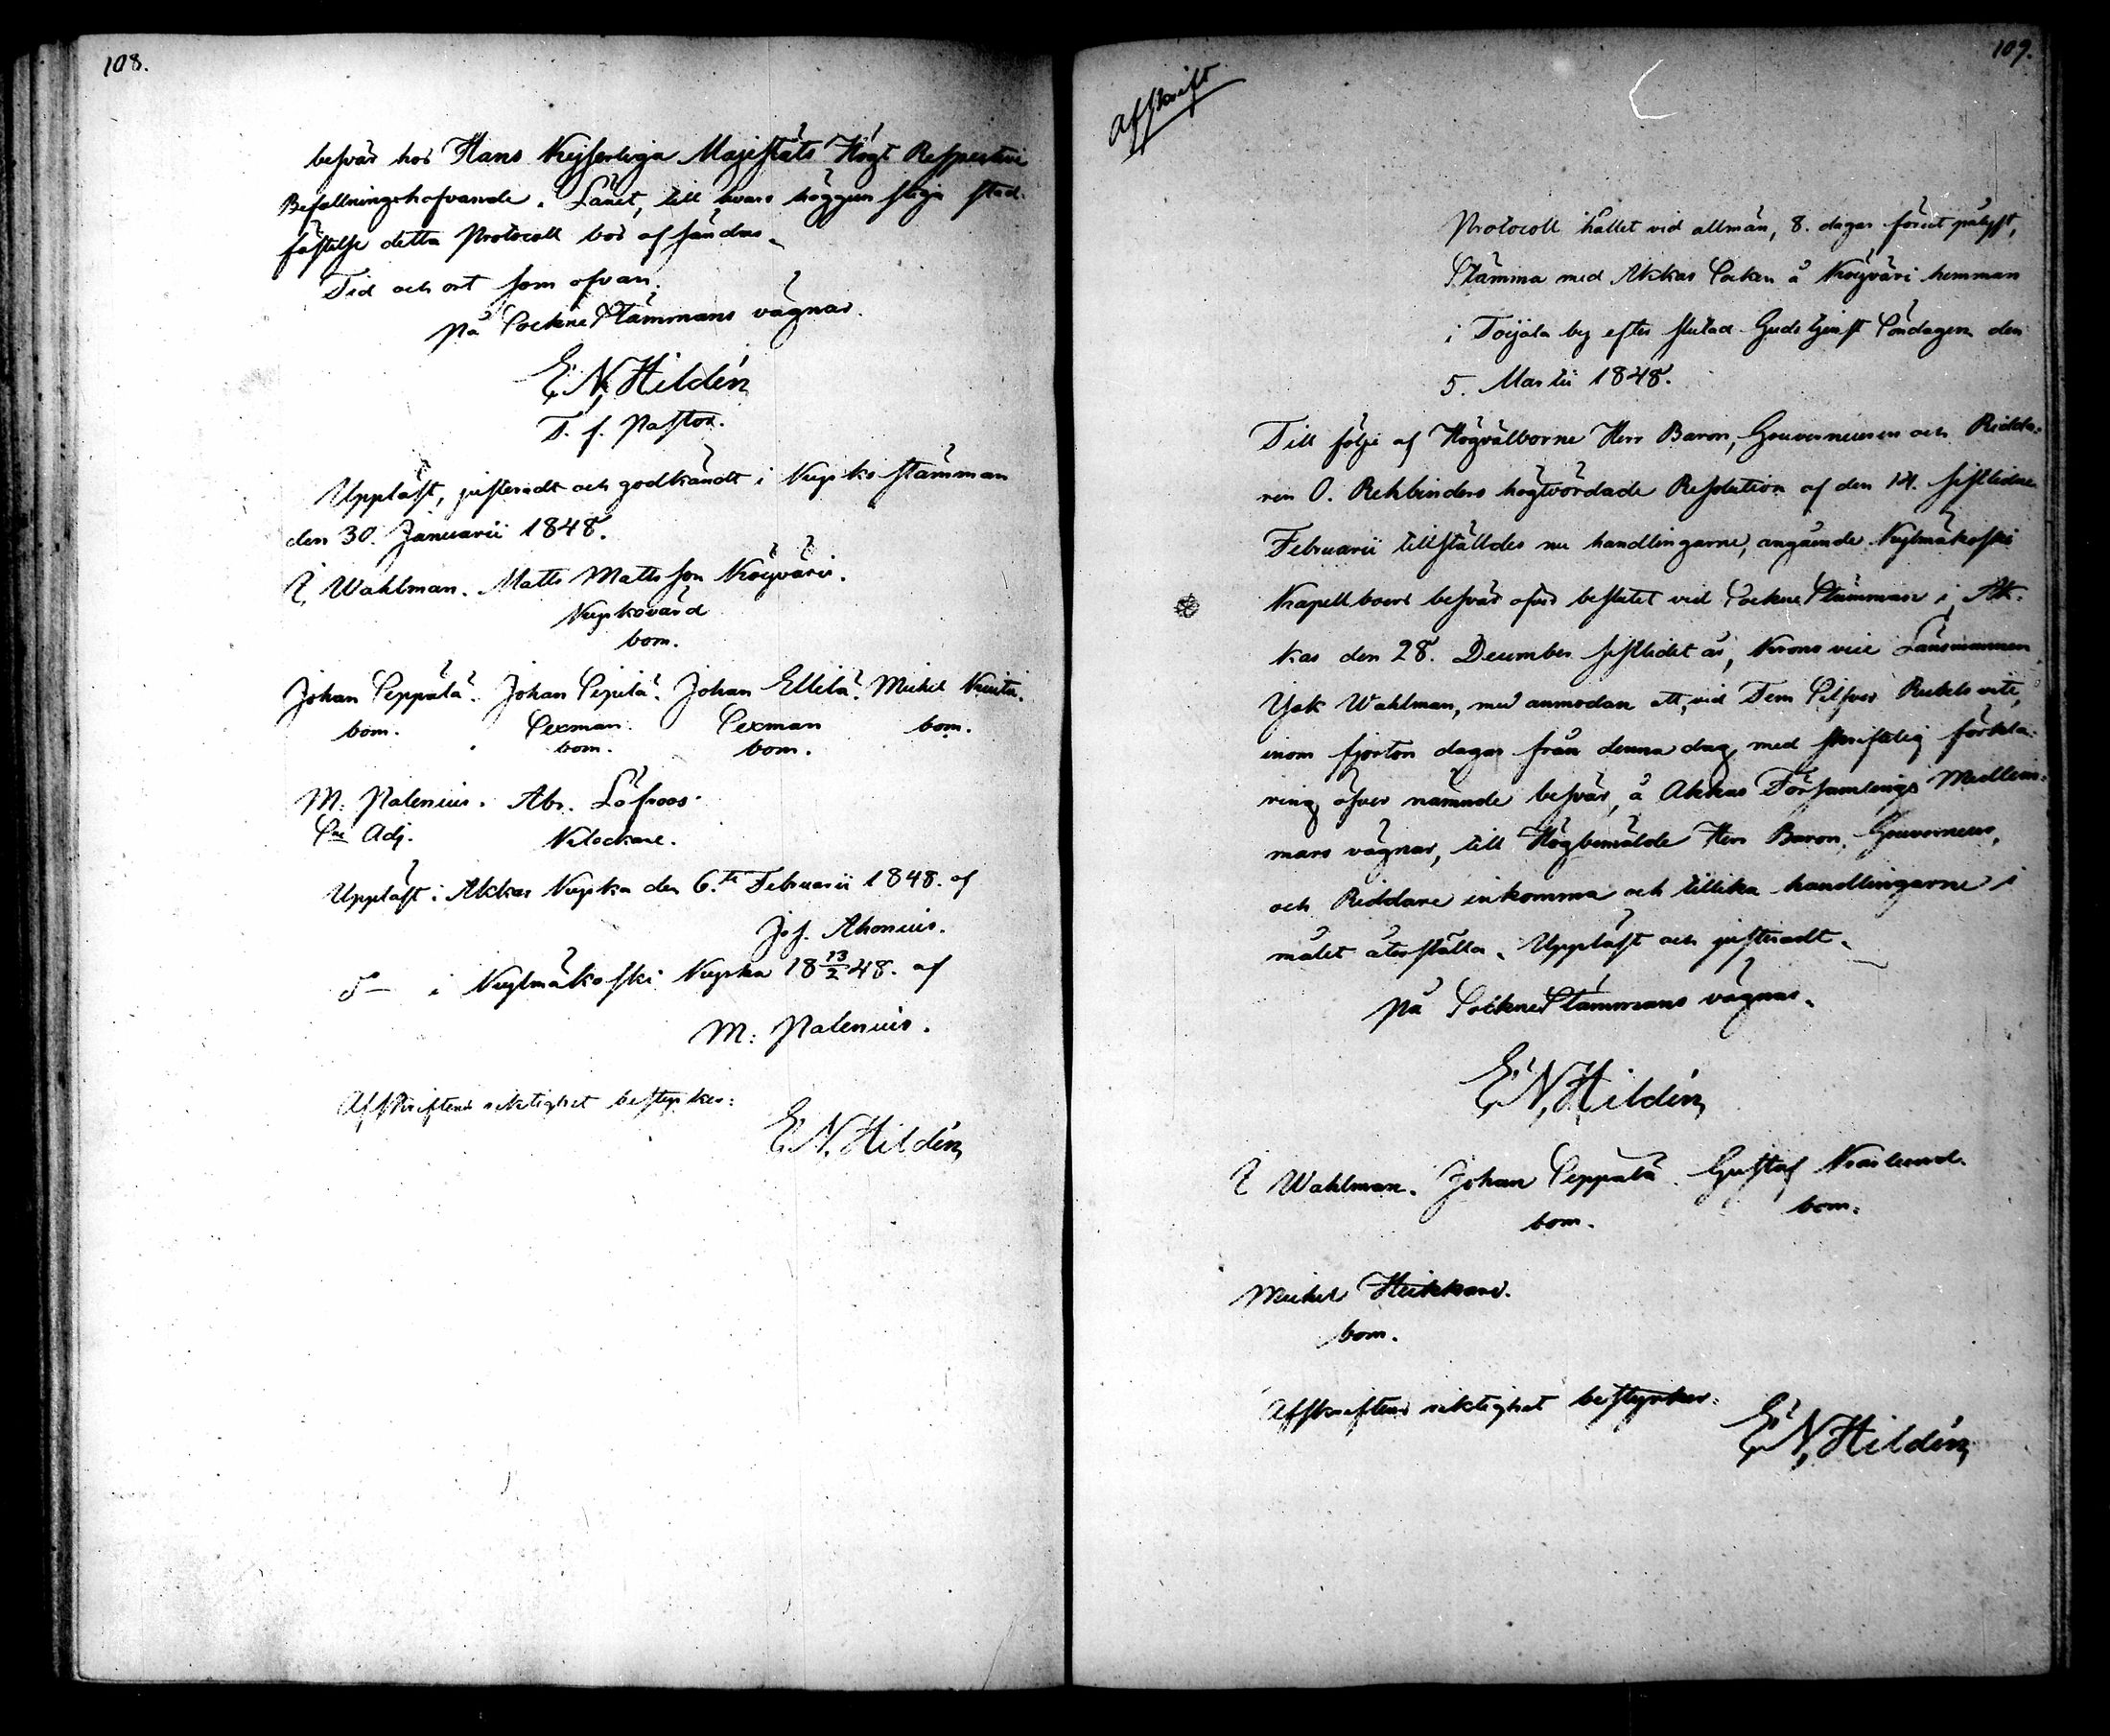 108.
besvär hos Hans Kejserliga Majestäts Högt Respective
Befallningshafvande i Länet, till hvars höggunstiga stad-
fästelse detta Protocoll bör afsändas.
Tid och ort som ofvan.
På SockneStämmans vägnar.
E. N. Hildén
T. f. Pastor.
Uppläst, justeradt och godkändt i Kyrkostämman
den 30. Januarii 1848.
I. Wahlman. Matts Mattsson Köyväri.
Kyrkovärd
bom.
Johan Seppälä. Johan Sipilä. Johan Ellilä. Michel
bom. Sexman. Sexman bom.
bom. bom.
M: Palenius. Abr. Löfroos.
Sne Adj. Klockare.
Uppläst i Akkas Kyrka den 6.te Februarii 1848. af
Jos. Ahonius.
d:o i Kylmäkoski Kyrka 18 13/2 48. af
M: Palenius.
Afskriftens riktighet bestyrker:
E. N. Hildén
109.
Afskrift
Protocoll hållet vid allmän, 8. dagar förut pålyst,
Stämma med Akkas Socken å Köyväri hemman
i Toijala by efter slutad Gudstjenst Söndagen den
5. Martii 1848.
Till följe af Högvälborne Herr Baron, Gouverneuren och Ridda-
ren O. Rehbinders högtvördade Resolution af den 14. sistlidne
Februarii tillställdes nu handlingarne, angående Kylmäkoski
Kapellboers besvär öfver beslutet vid SockneStämman i Ak-
kas den 28. December sistledit år, Krono vice Länsmannen
Isak Wahlman, med anmodan att, vid Fem Silfver Rubels vite,
inom fjorton dagar från denna dag med skriftelig förkla-
ring öfver nämnde besvär, å Akkas Församlings Medlem-
mars vägnar, till Högbemälde Herr Baron, Gouverneur,
och Riddare inkomma och tillika handlingarne i
målet återställa. Uppläst och justeradt.
På SockneStämmans vägnar.
E. N. Hildén
I. Wahlman. Johan Seppälä. Gustaf
bom. bom.
Michel Heikkare.
bom.
Afskriftens riktighet bestyrker:
E. N. Hildén